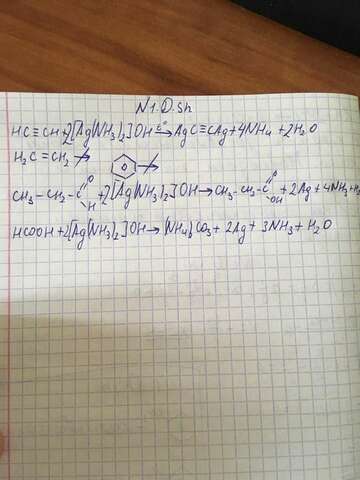 N1. D. sh
HC≡CH+2[Ag(NH₃)₂]OH →t° AgC≡CAg+4NH₄ +2H₂O
H₂C=CH₂
CH₃-CH₂-C O H +2[Ag(NH₃)₂]OH→CH₃-CH₂-C O OH +2Ag+4NH₃+H₂
HCOOH+2[Ag(NH₃)₂]OH→(NH₄)₂CO₃+2Ag+3NH₃+H₂O